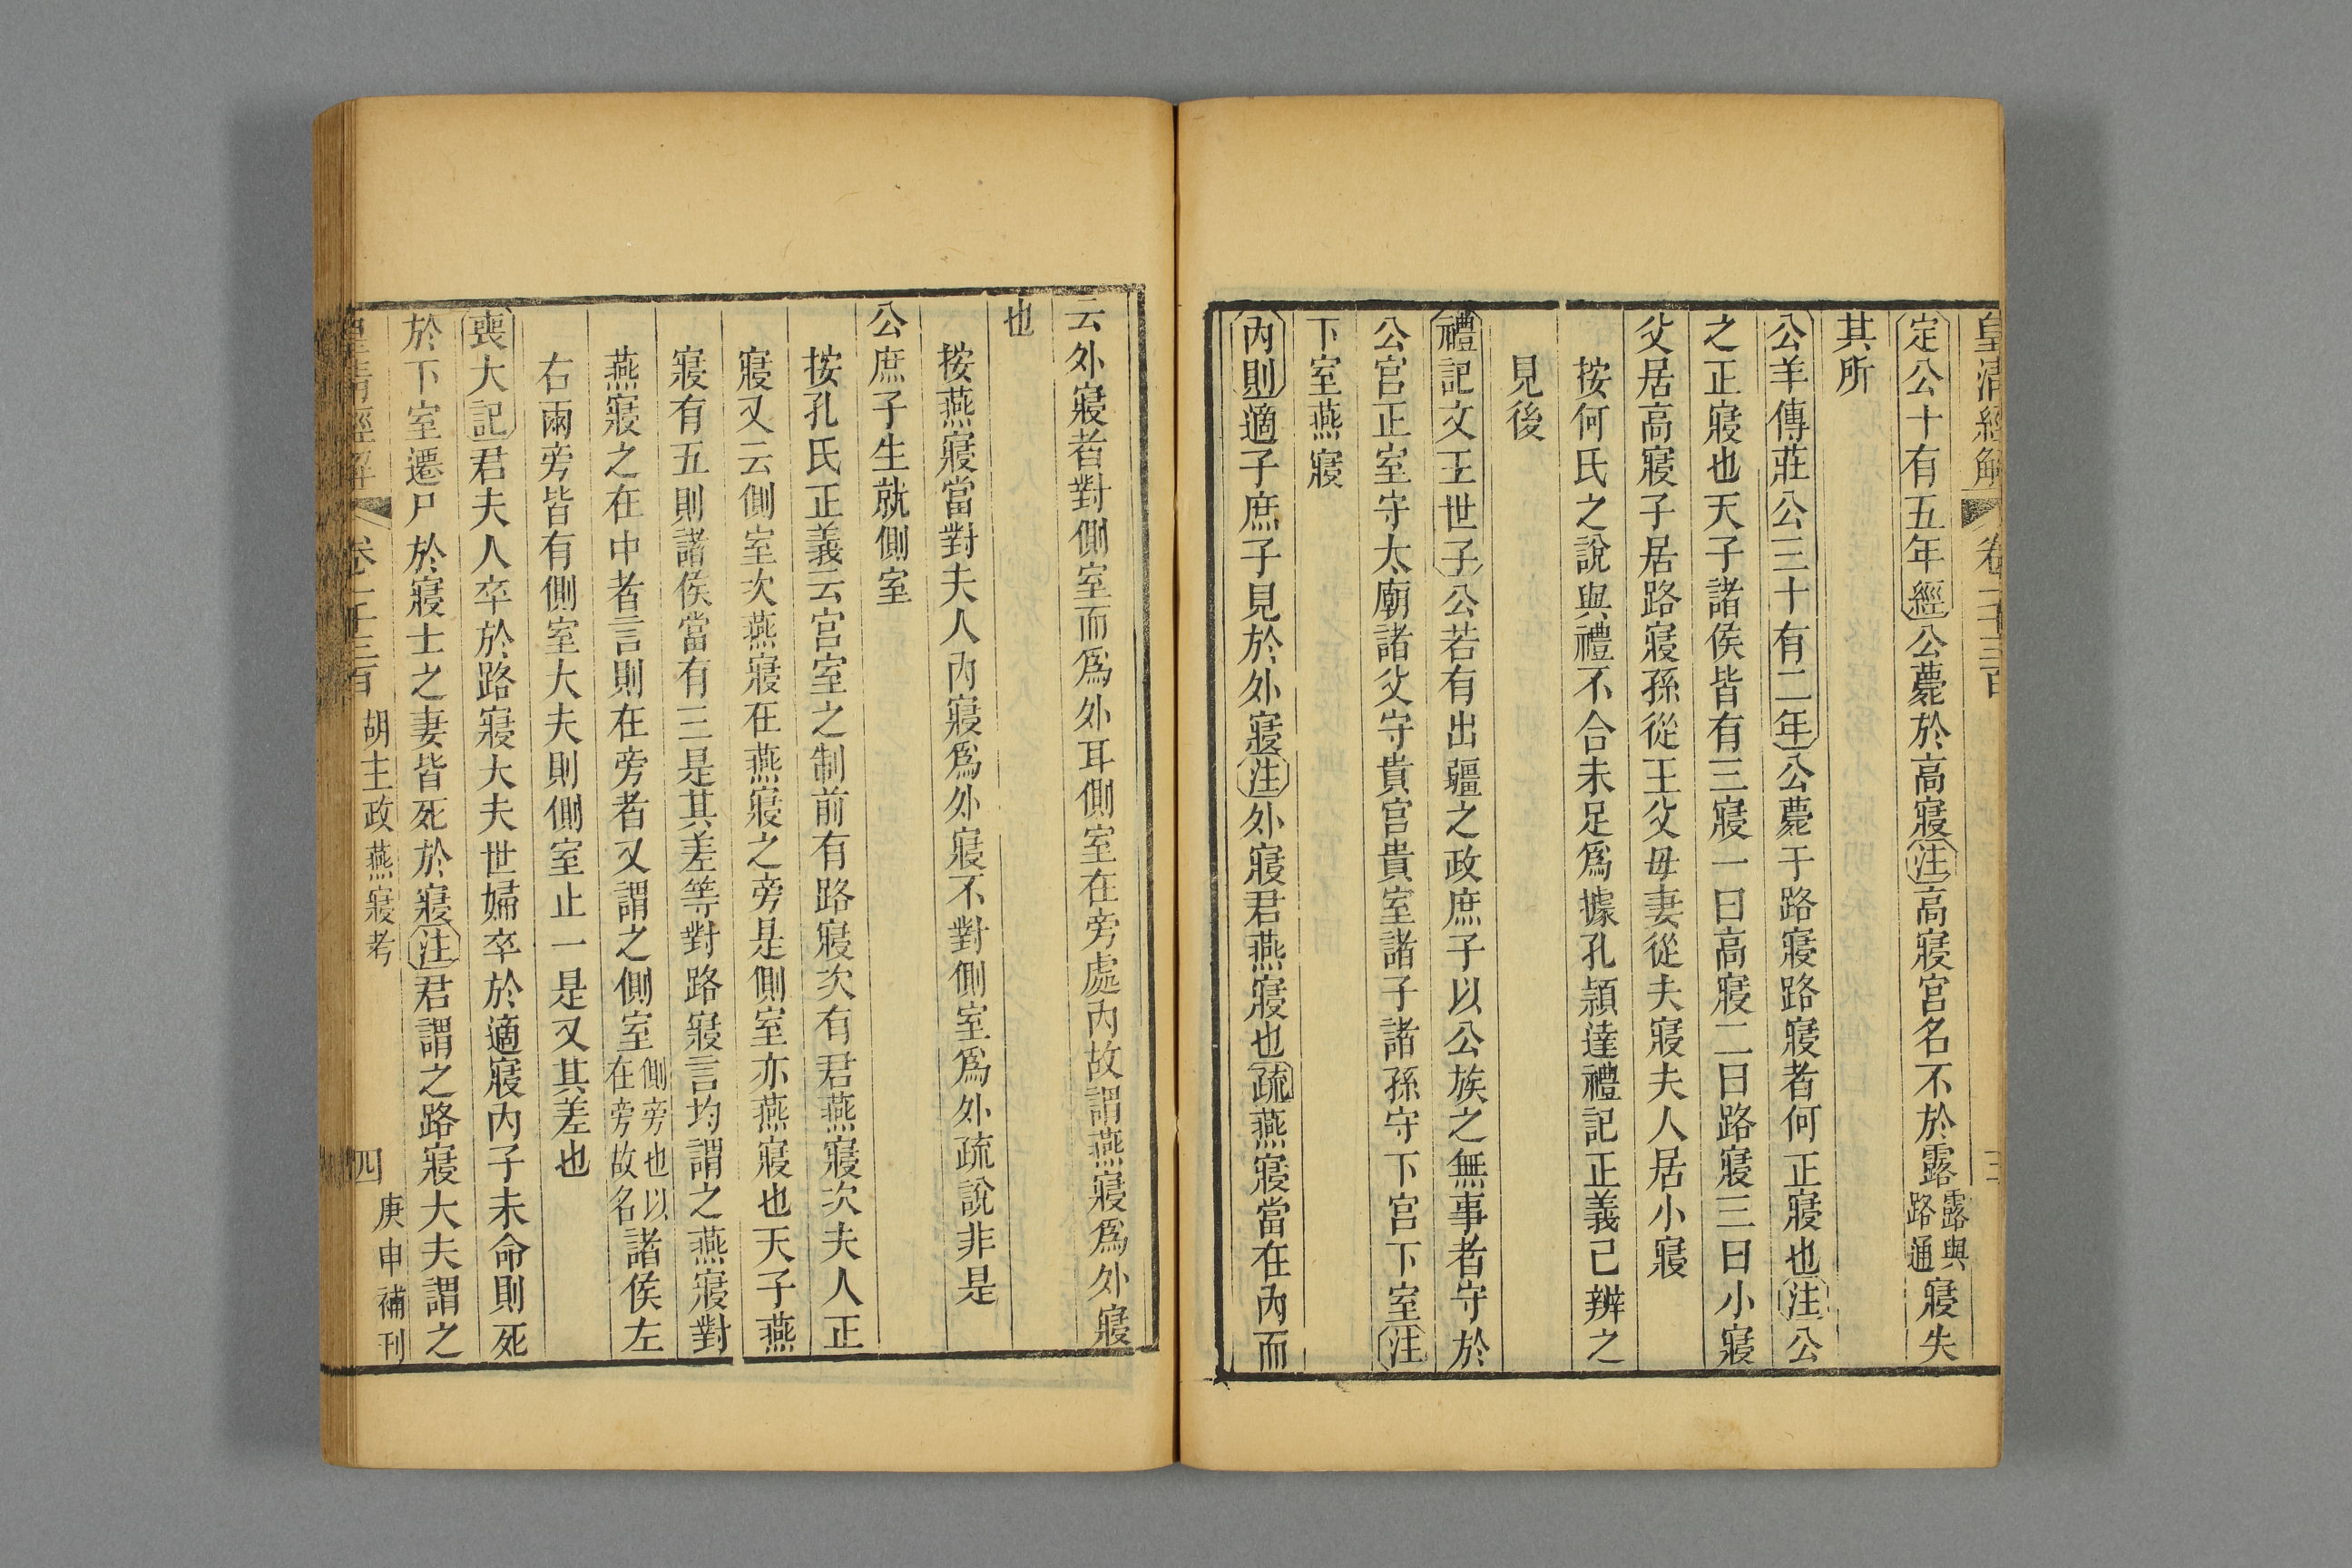 皇清經解 卷一千三百 三
定公十有五年經公薨於高寢注高寢宮名不於露露與路通寢失
其所
公羊傳莊公三十有二年公薨于路寢路寢者何正寢也注公
之正寢也天子諸侯皆有三寢一曰高寢二曰路寢三曰小寢
父居高寢子居路寢孫從王父母妻從夫寢夫人居小寢
按何氏之說與禮不合未足爲據孔頴達禮記正義已辨之
見後
禮記文王世子公若有出疆之政庶子以公族之無事者守於
公宮正室守太廟諸父守貴宮貴室諸子諸孫守下宮下室注
下室燕寢
內則適子庶子見於外寢注外寢君燕寢也疏燕寢當在內而
云外寢者對側室而爲外耳側室在旁處內故謂燕寢爲外寢
也
按燕寢當對夫人內寢爲外寢不對側室爲外疏說非是
公庶子生就側室
按孔氏正義云宮室之制前有路寢次有君燕寢次夫人正
寢又云側室次燕寢在燕寢之旁是側室亦燕寢也天子燕
寢有五則諸侯當有三是其差等對路寢言均謂之燕寢對
燕寢之在中者言則在旁者又謂之側室側旁也以在旁故名諸侯左
右兩旁皆有側室大夫則側室止一是又其差也
喪大記君夫人卒於路寢大夫世婦卒於適寢內子未命則死
於下室遷尸於寢士之妻皆死於寢注君謂之路寢大夫謂之
皇清經解 卷一千三百 胡主政燕寢考 四 庚申補刊